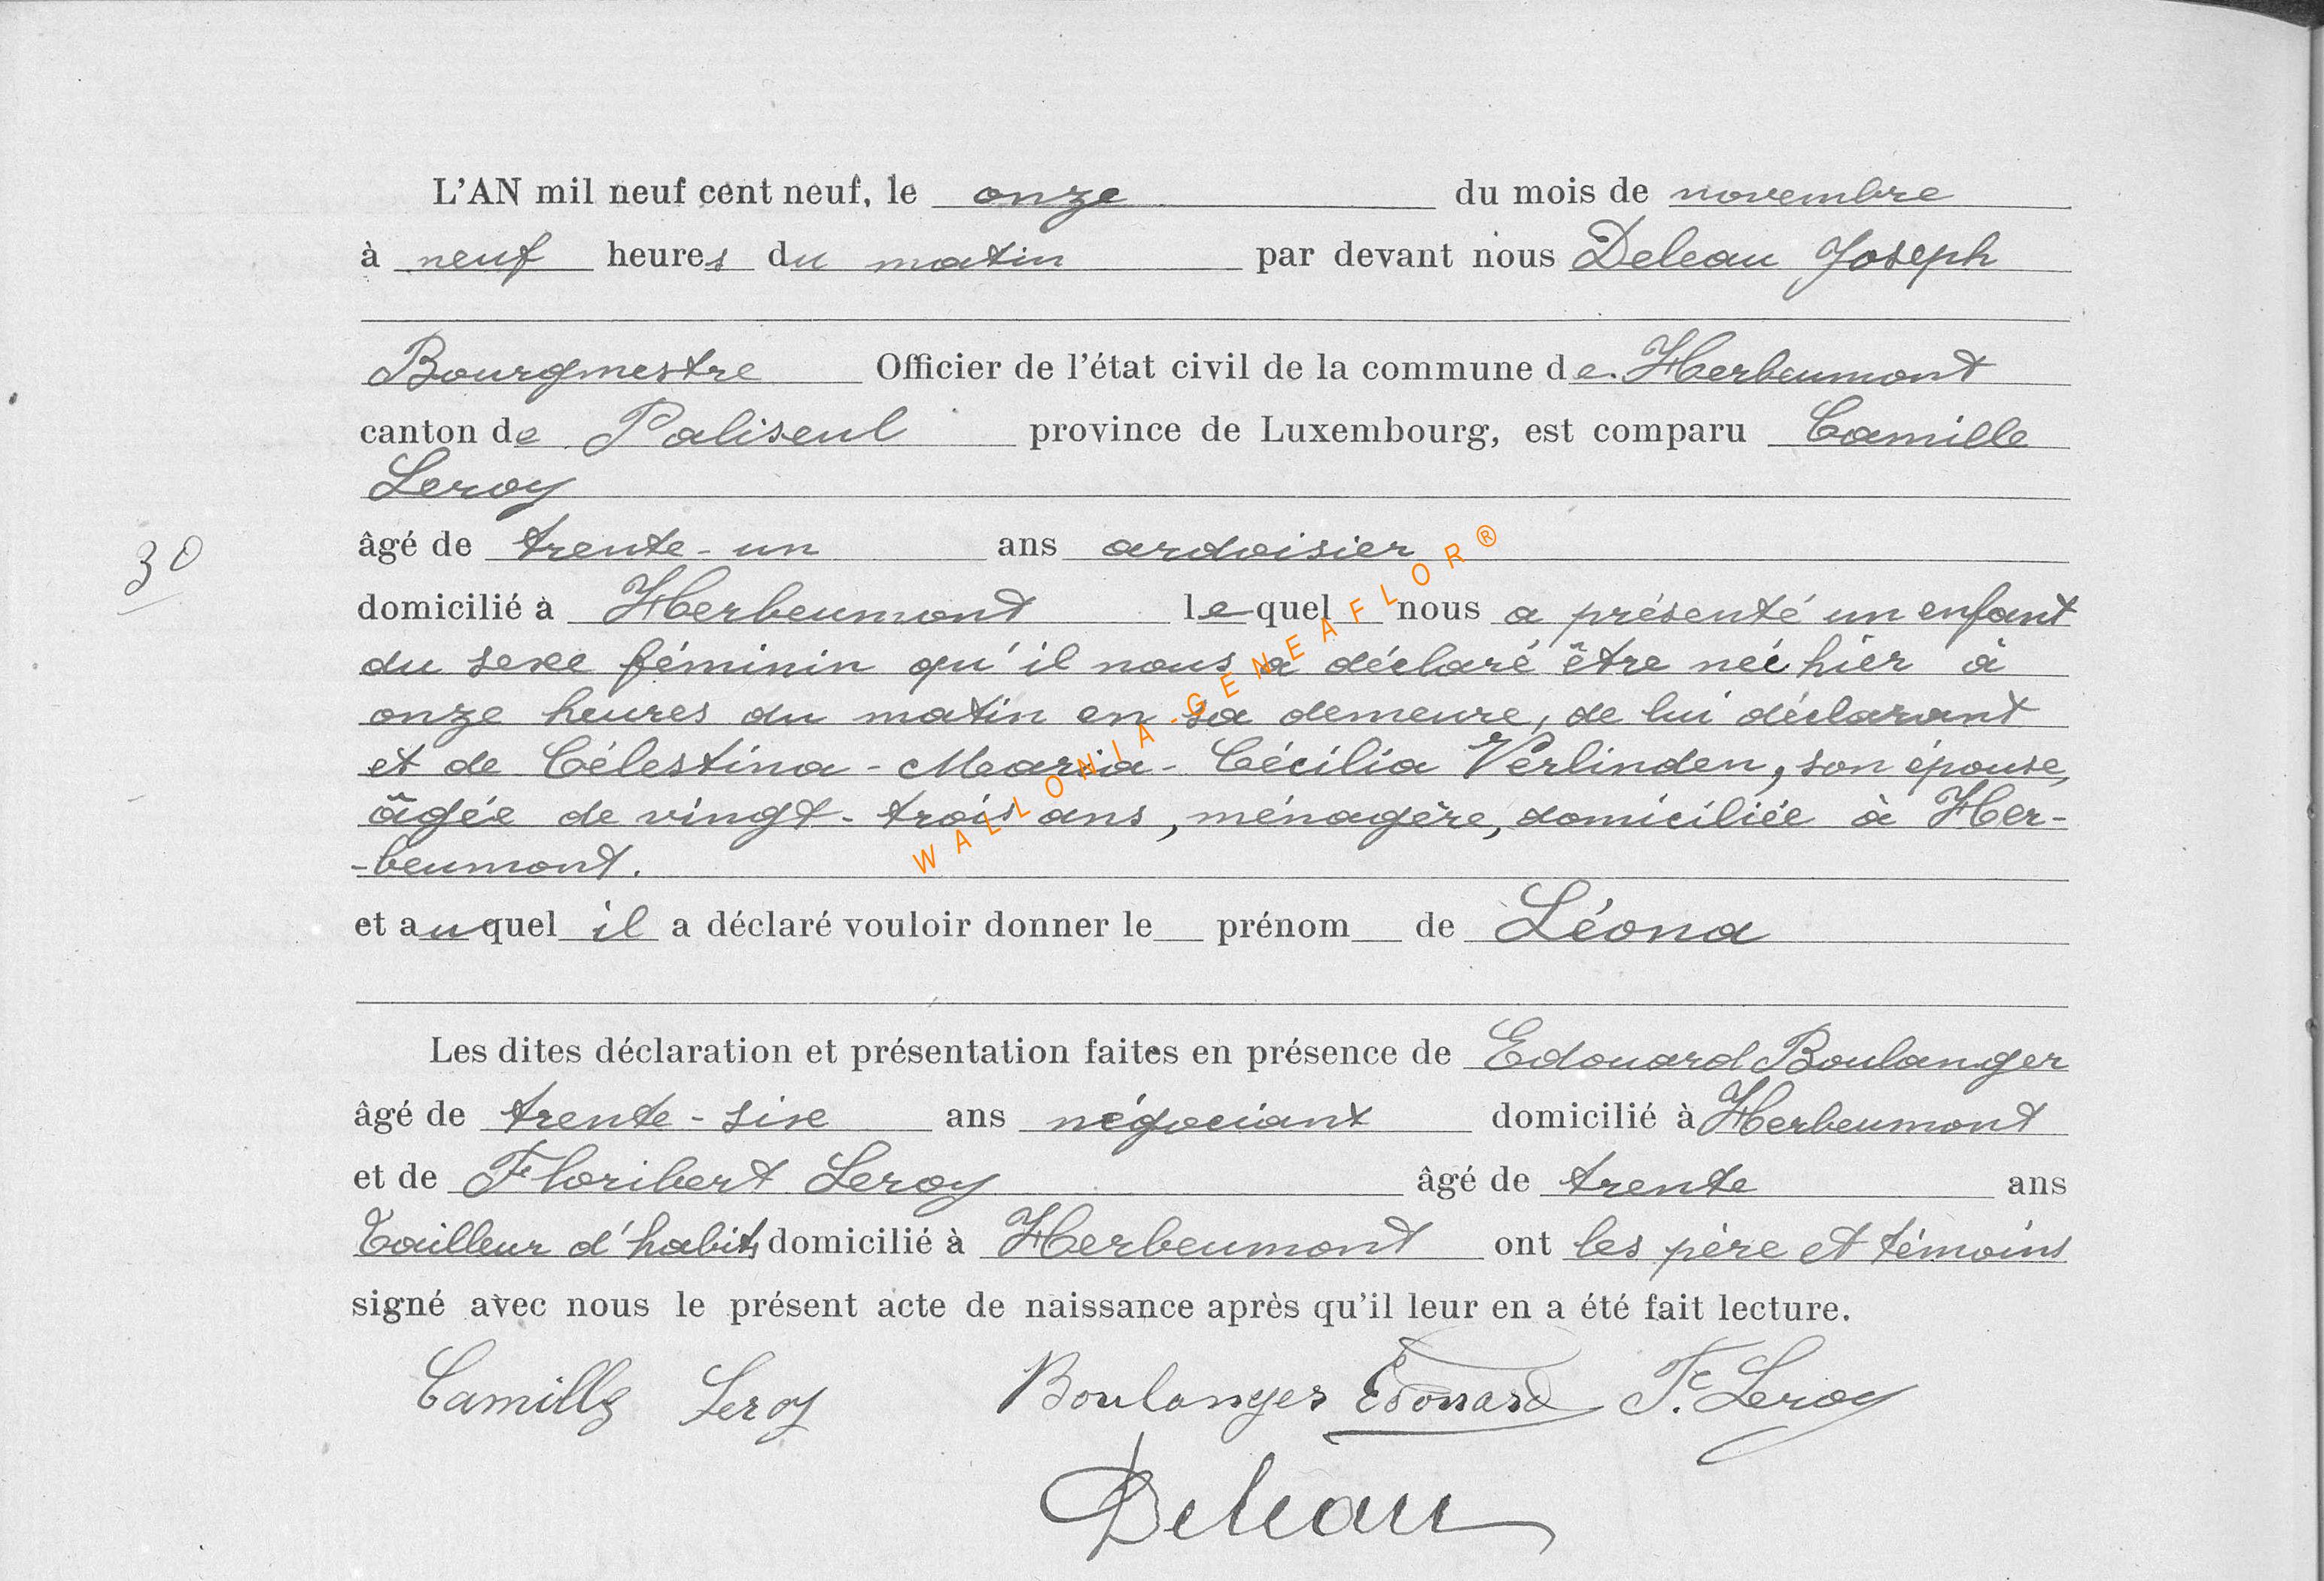 L'AN mil neuf cent neuf, le onze du mois de novembre
à neuf heures du matin par devant nous Deleau Joseph
Bourgmestre Officier de l'état civil de la commune de Herbeumont
canton de Paliseul province de Luxembourg, est comparu Camille
Leroy
âgé de trente-un ans ardoisier
30
domicilié à Herbeumont lequel nous a présenté un enfant
du sexe féminin qu'il nous a déclaré être née hier à
onze heures du matin en sa demeure, de lui déclarant
et de Célestina-Maria-Cécilia Verlinden, son épouse,
âgée de vingt-trois ans, ménagère, domiciliée à Her-
-beumont.
WALLONIA-GENEAFLOR®
et auquel il a déclaré vouloir donner le prénom de Léona
Les dites déclaration et présentation faites en présence de Edouard Boulanger
âgé de trente-six ans négociant domicilié à Herbeumont
et de Floribert Leroy âgé de trente ans
Tailleur d'habits domicilié à Herbeumont ont les père et témoins
signé avec nous le présent acte de naissance après qu'il leur en a été fait lecture.
Camille Leroy Boulanger Edouard F. Leroy
Deleau